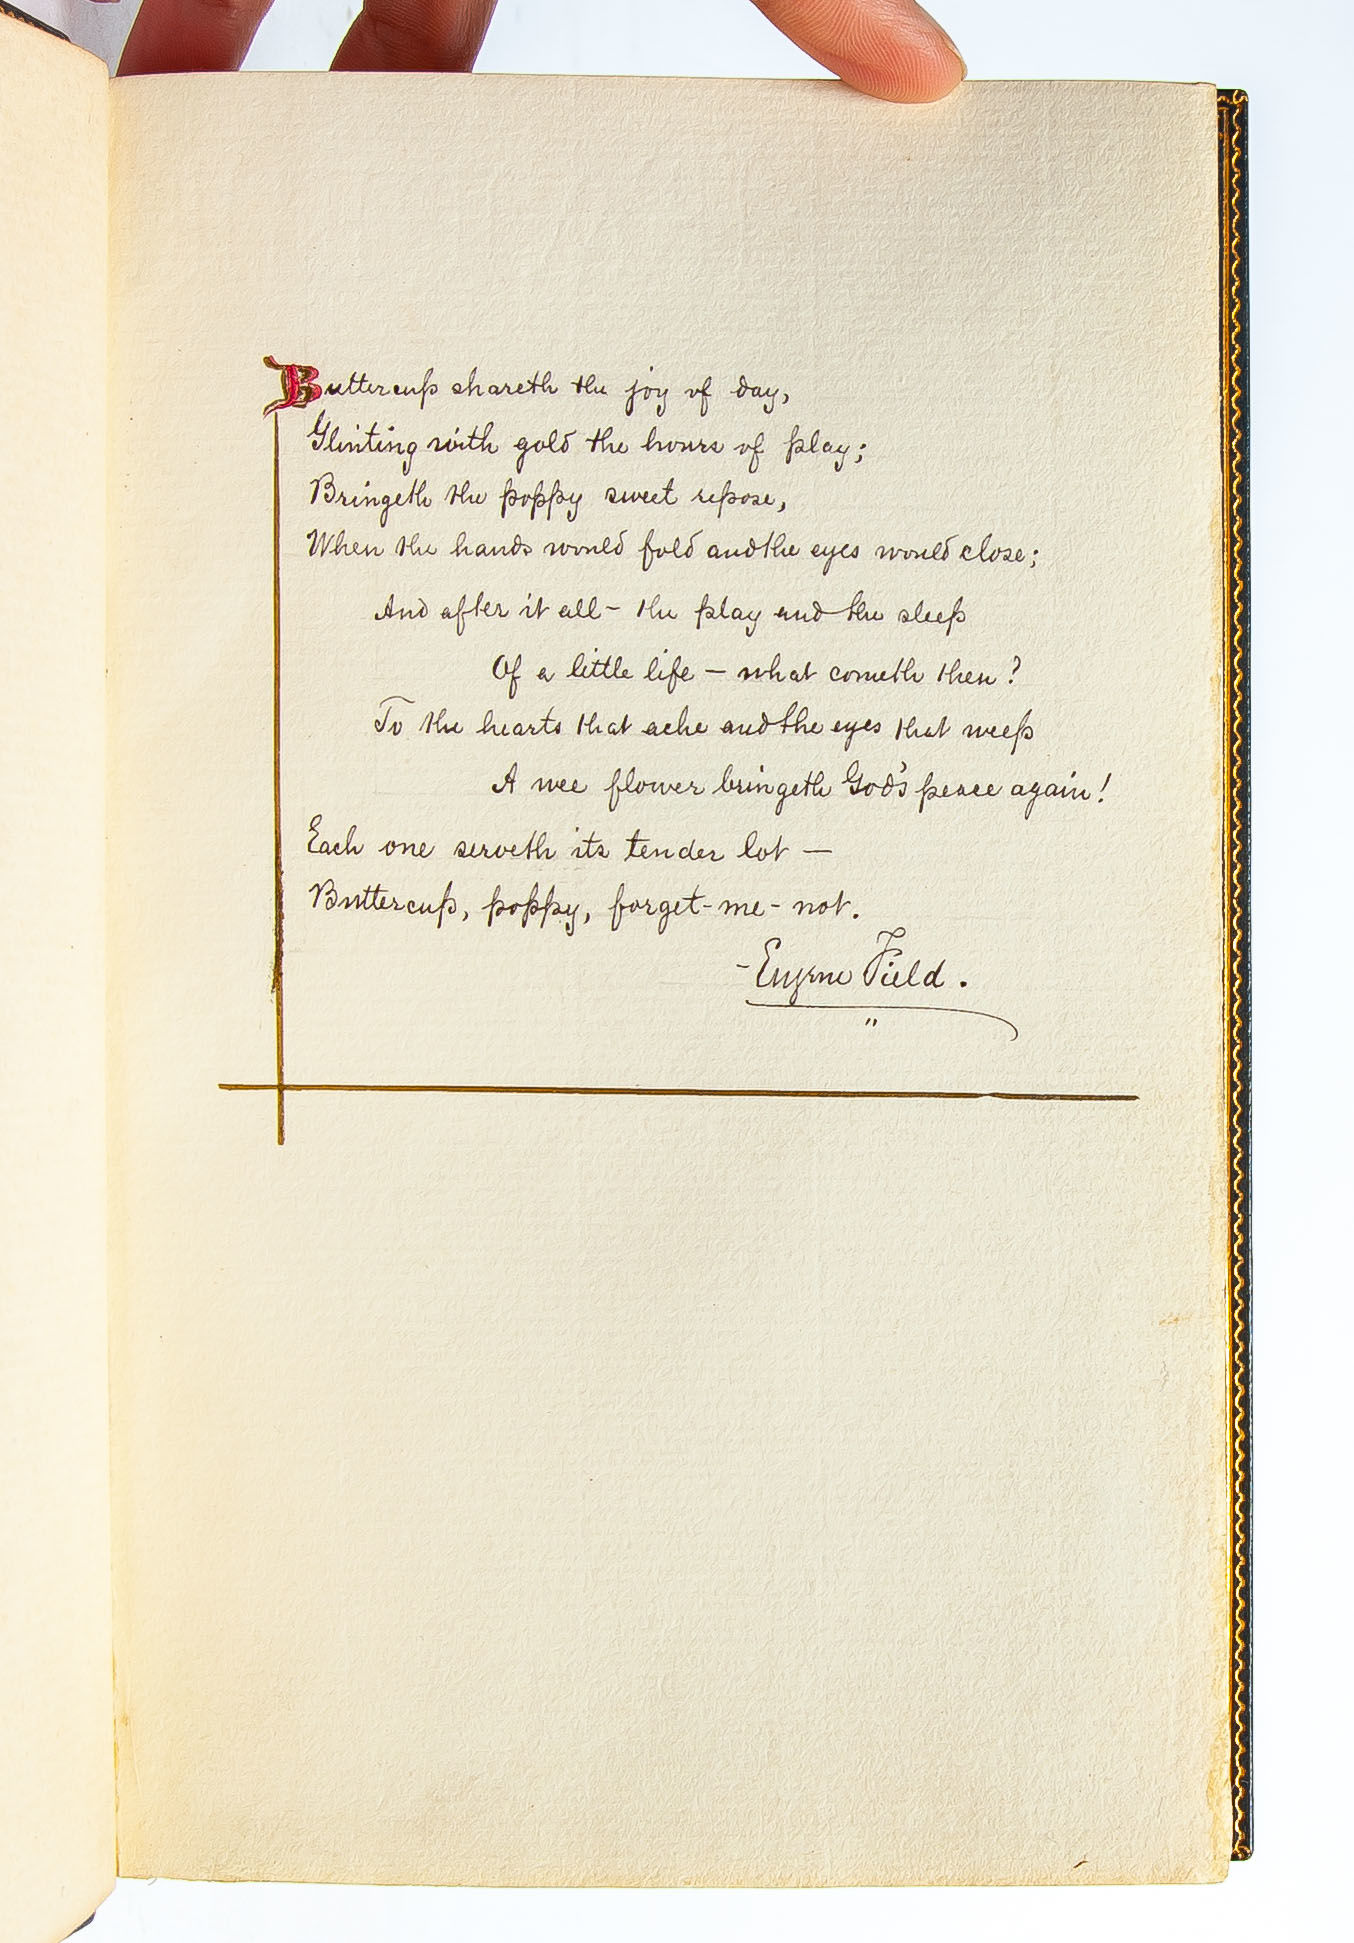 Buttercup shareth the joy of day,
Glinting with gold the hours of play;
Bringeth the poppy sweet repose,
When the hands would fold and the eyes would close;
And after it all – the play and the sleep
Of a little life – what cometh then?
To the hearts that ache and the eyes that weep
A wee flower bringeth God's peace again!
Each one serveth its tender lot —
Buttercup, poppy, forget-me-not.
– Eugene Field.